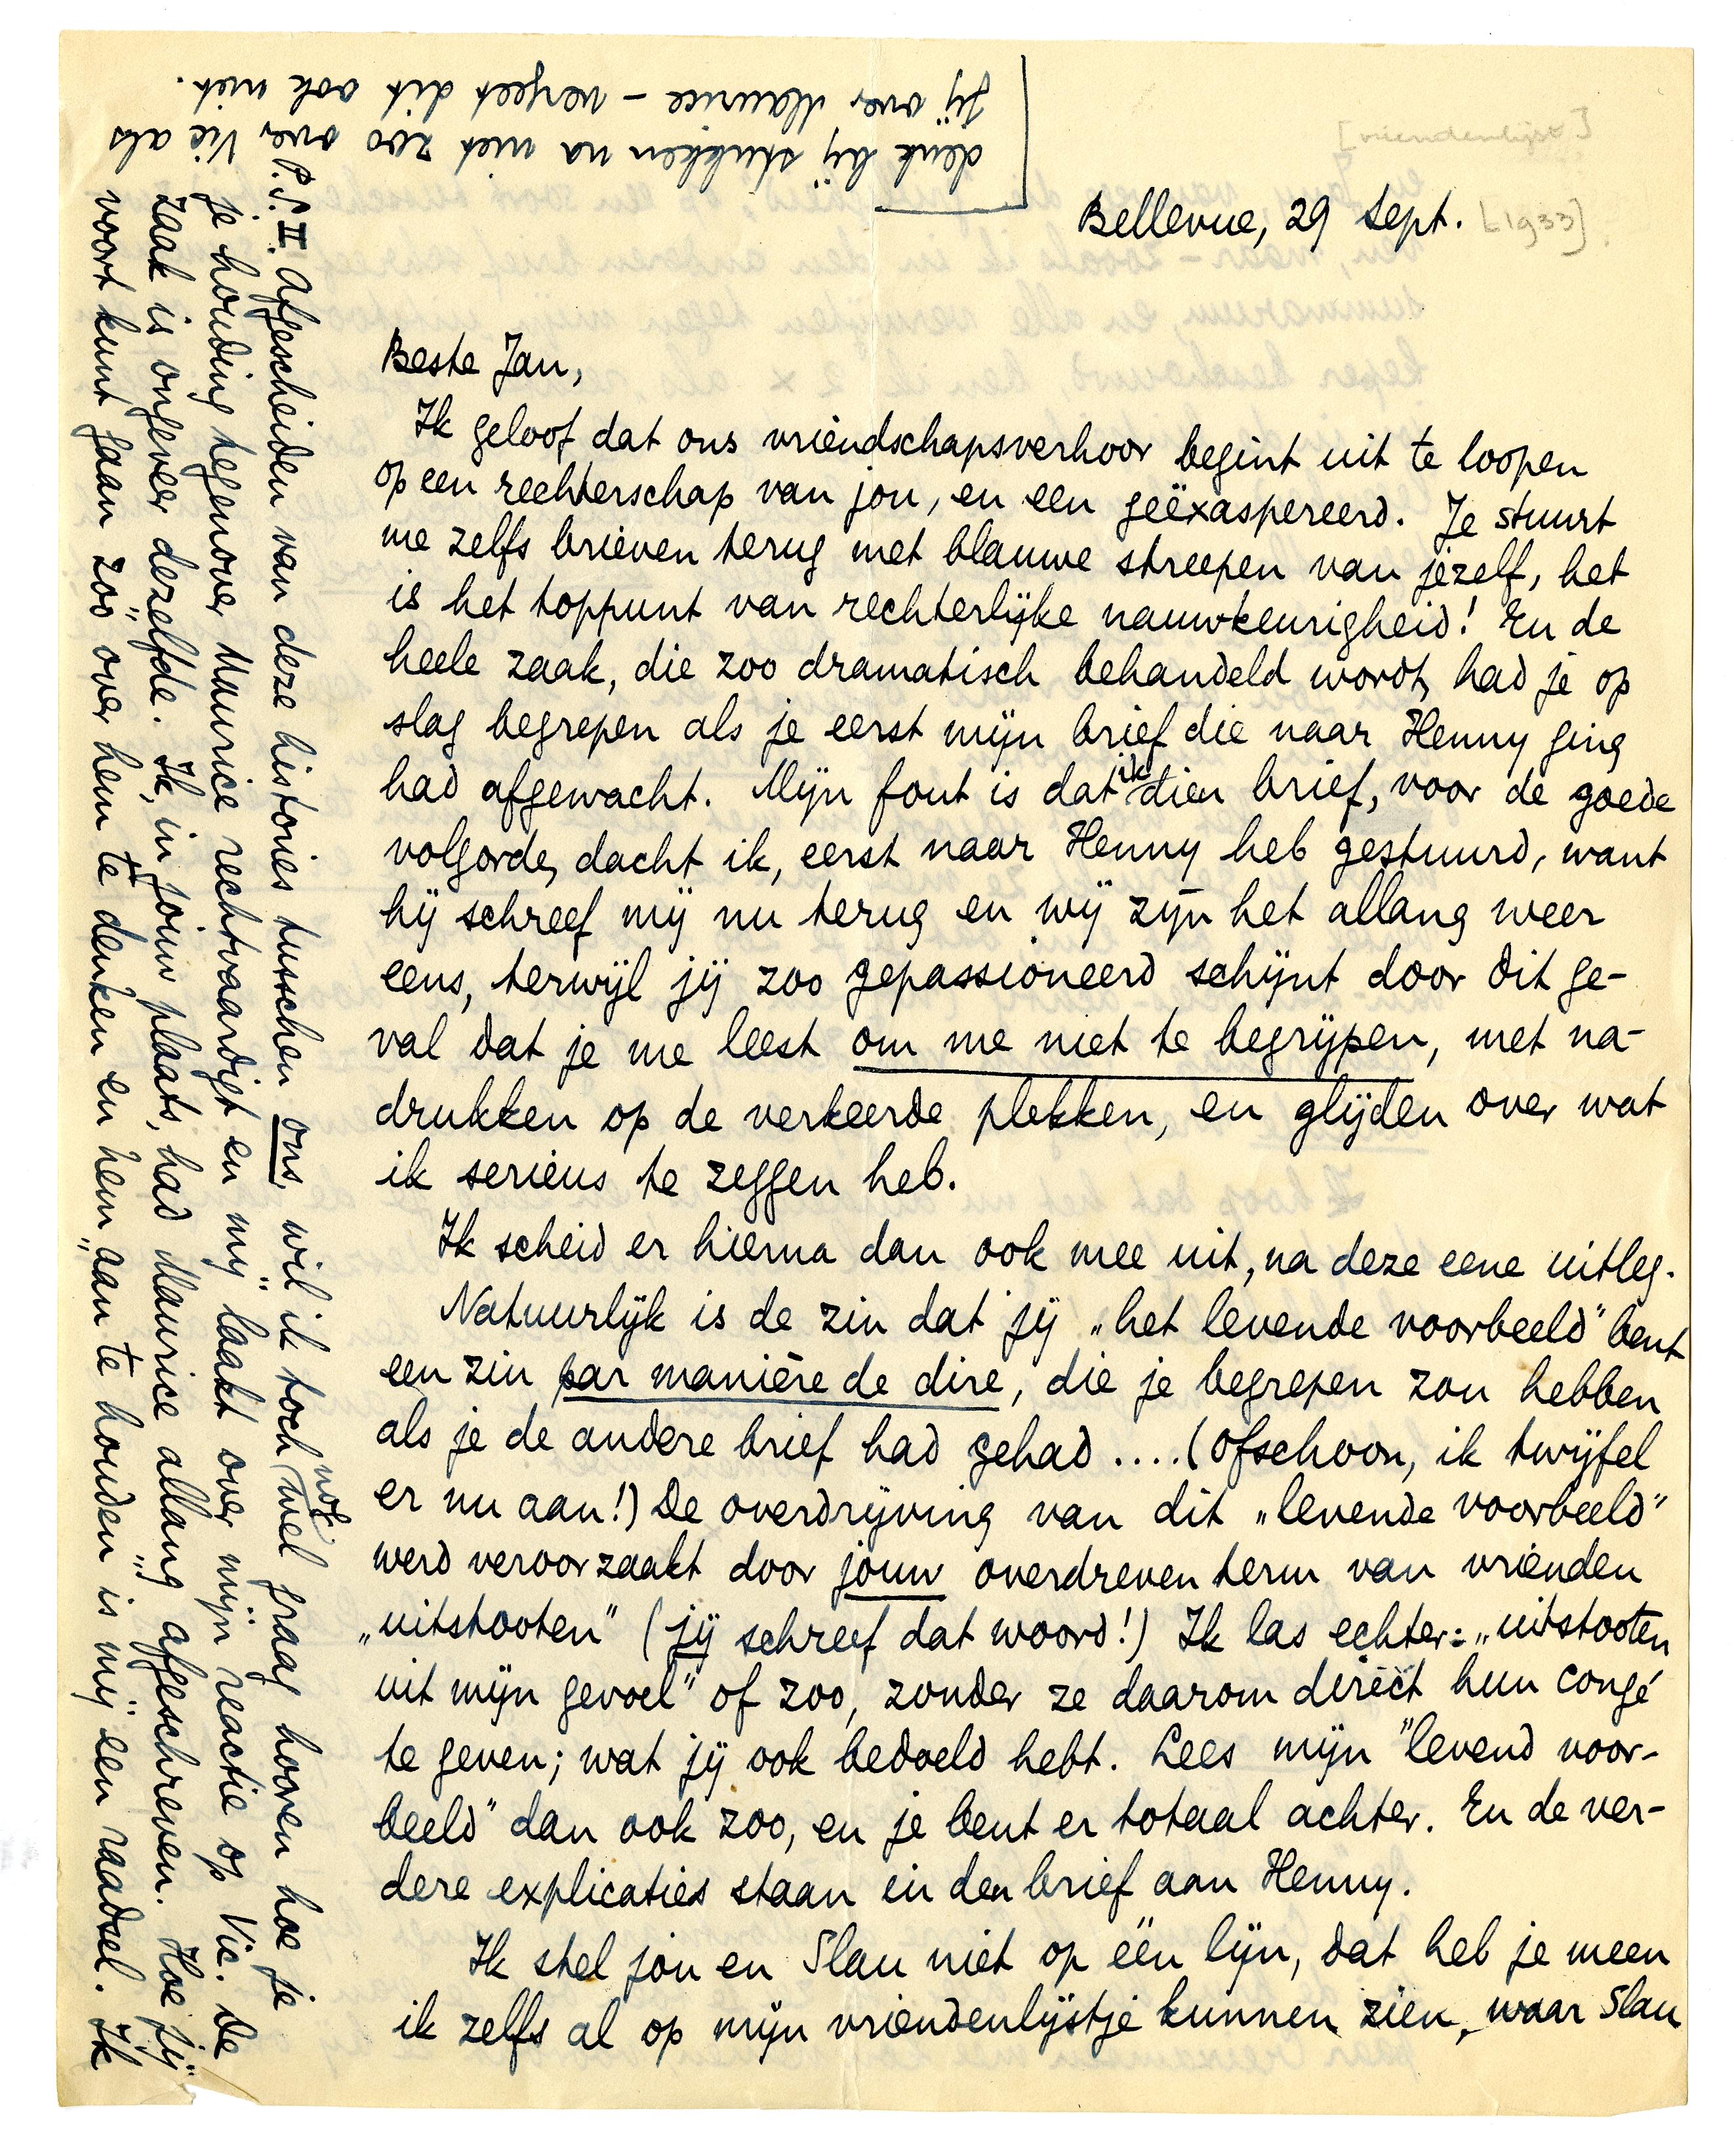 [vriendenlijst]
Bellevue, 29 Sept. [1933].
Beste Jan,
Ik geloof dat ons vriendschapsverhoor begint uit te loopen
op een rechterschap van jou, en een geëxaspereerd. Je stuurt
me zelfs brieven terug met blauwe streepen van jezelf, het
is het toppunt van rechterlijke nauwkeurigheid! En de
heele zaak, die zoo dramatisch behandeld wordt, had je op
slag begrepen als je eerst mijn brief die naar Henny ging
had afgewacht. Mijn fout is dat ik dien brief, voor de goede
volgorde, dacht ik, eerst naar Henny heb gestuurd, want
hij schreef mij nu terug en wij zijn het allang weer
eens, terwijl jij zoo gepassioneerd schijnt door dit ge-
val dat je me leest om me niet te begrijpen, met na-
drukken op de verkeerde plekken, en glijden over wat
ik serieus te zeggen heb.
Ik scheid er hierna dan ook mee uit, na deze eene uitleg.
Natuurlijk is de zin dat jij „het levende voorbeeld” bent
een zin par manière de dire, die je begrepen zou hebben
als je de andere brief had gehad .... (Ofschoon, ik twijfel
er nu aan!) De overdrijving van dit „levende voorbeeld”
werd veroorzaakt door jouw overdreven term van vrienden
„uitstooten” (jij schreef dat woord!) Ik las echter: „uitstooten
uit mijn gevoel” of zoo, zonder ze daarom direct hun congé
te geven; wat jij ook bedoeld hebt. Lees mijn "levend voor-
beeld" dan ook zoo, en je bent er totaal achter. En de ver-
dere explicaties staan in den brief aan Henny.
Ik stel jou en Slau niet op één lijn, dat heb je meen
ik zelfs al op mijn vriendenlijstje kunnen zien, waar Slau
P.S. II. Afgescheiden van deze histories tusschen ons, wil ik toch nog wel graag hooren hoe je
je houding tegenover Maurice rechtvaardigt en mij „laakt” over mijn reactie op Vic. De
zaak is ongeveer dezelfde. Ik, in jouw plaats, had Maurice allang „afgeschreven”. Hoe jij
voort kunt gaan zóó over hem te denken en hem „aan te houden” is mij een raadsel. Ik
denk bij stukken na niet zoo over Vic als
jij over Maurice – vergeet dit ook niet.